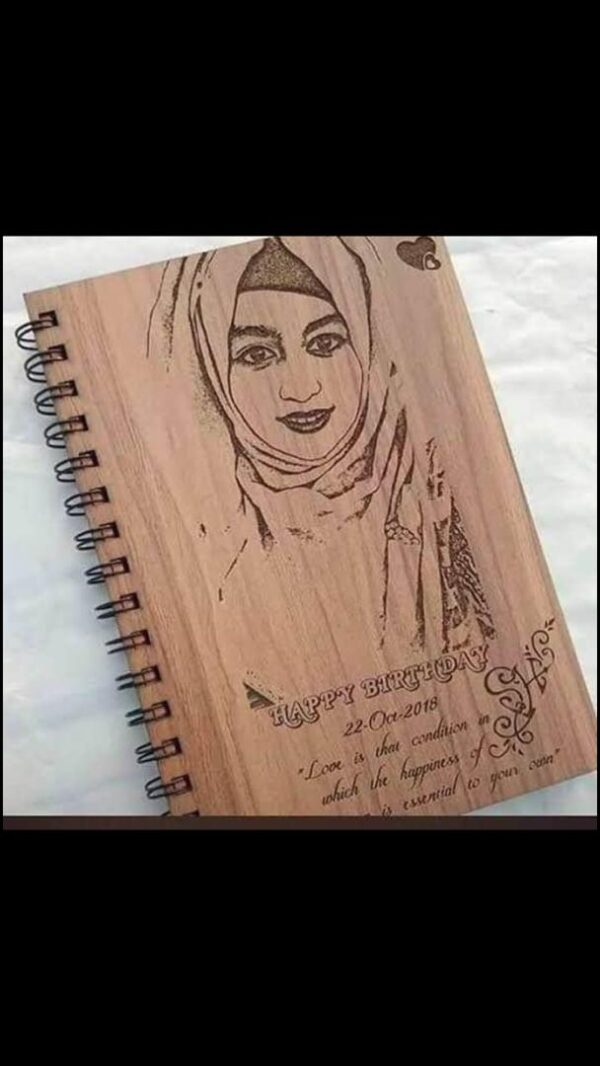 HAPPY BIRTHDAY
22-Oct-2018
"Love is that condition in
which the happiness of
is essential to your own"
SH